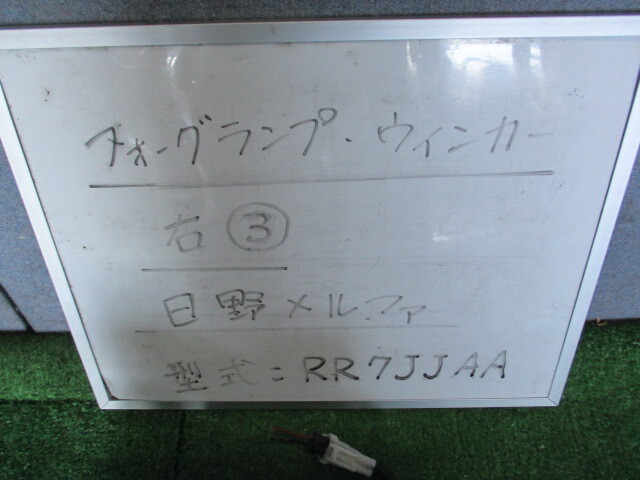 フォーグランプ、ウィンカー
右 ③
日野メルファ
型式:RR7JJAA